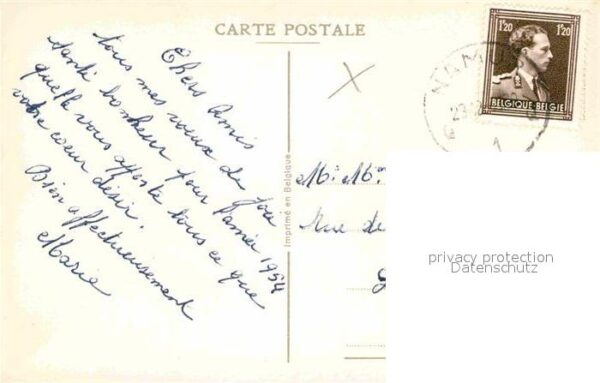 CARTE POSTALE
Chers Amis
tous mes voeux de joie
santé bonheur pour l'année 1954
qu'elle vous apporte tous ce que
votre coeur désir.
Bien affectueusement
Maria
Imprimé en Belgique
1F20 1F20
BELGIQUE-BELGIË
NAM
23
1
M. Mme
Rue de
privacy protection
Datenschutz